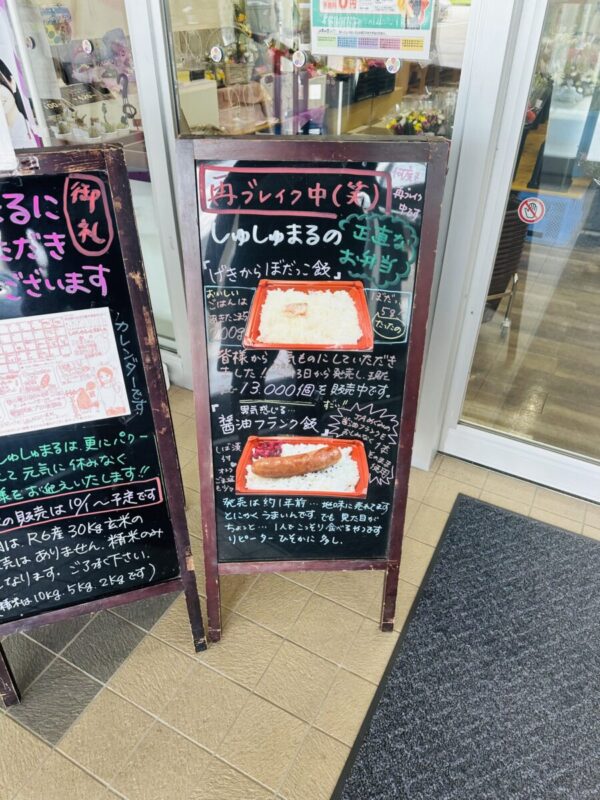 御礼
まるに
ただき
ございます
カレンダーです
しゅしゅまるは、更にパワー
して元気に休みなく
様をお迎えいたします!!
の販売は10/1〜予定です
は、R6産30kg玄米の
売はありません。精米のみ
となります。ご了承下さい。
精米は10kg.5kg.2kgです)
再ブレイク中(笑)
何度も
再ブレイク
しゅしゅまるの
正直な
お弁当
「げきからぼだっこ飯」
おいしい
ごはんは
200g
ぼだっこ
5g
だいたいの
皆様から人気ものにしていただき
ました!
日から発売し、現在
13,000個を販売中です。
すごい!!
異気感じる…
醤油フランク飯
しば漬
付
発売は約1年前…地味に売れてます
とにかくうまいんです でも見た目が
ちょっと…1人でこっそり食べるやつです
リピーター ひそかに多し。